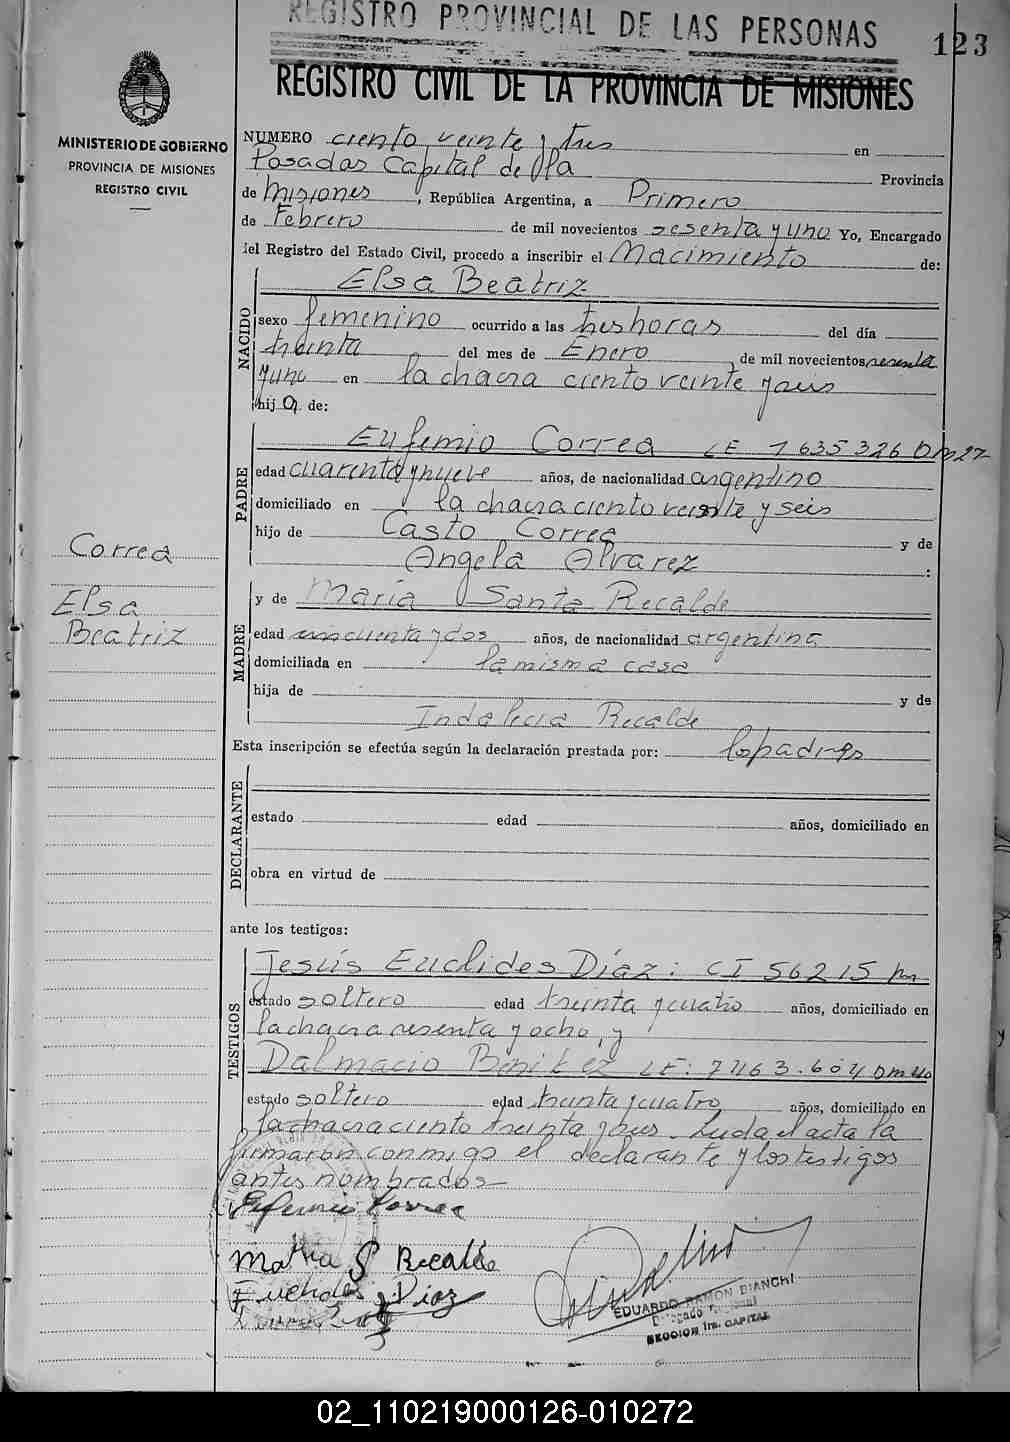 REGISTRO PROVINCIAL DE LAS PERSONAS
123
REGISTRO CIVIL DE LA PROVINCIA DE MISIONES
MINISTERIO DE GOBIERNO
PROVINCIA DE MISIONES
REGISTRO CIVIL
NUMERO ciento veinte y tres en
Posadas Capital de la Provincia
de Misiones, República Argentina, a Primero
de Febrero de mil novecientos sesenta y uno Yo, Encargado
del Registro del Estado Civil, procedo a inscribir el Nacimiento de:
NACIDO
Elsa Beatriz
sexo femenino ocurrido a las tres horas del día
treinta del mes de Enero de mil novecientos sesenta
y uno en la chacra ciento veinte y seis
hija de:
PADRE
Eufemio Correa LE 1635326 Dm 27
edad cuarenta y nueve años, de nacionalidad argentino
domiciliado en la chacra ciento veinte y seis
hijo de Casto Correa y de
Angela Alvarez :
Correa
Elsa
Beatriz
MADRE
y de María Santa Recalde
edad cincuenta y dos años, de nacionalidad argentina
domiciliada en la misma casa
hija de y de
Indalecia Recalde
Esta inscripción se efectúa según la declaración prestada por: los padres
DECLARANTE
estado edad años, domiciliado en
obra en virtud de
ante los testigos:
TESTIGOS
Jesús Euclides Díaz: CI 56215 m
estado soltero edad treinta y cuatro años, domiciliado en
la chacra sesenta y ocho, y
Dalmacio Benitez LE: 7463.604 Dm 40
estado soltero edad treinta y cuatro años, domiciliado en
la chacra ciento treinta y seis. Leida el acta la
firmaron conmigo el declarante y los testigos
antes nombrados
Eufemio Correa
Maria S Recalde
Euclides Diaz
EDUARDO RAMON BIANCHI
SECCION 1ra. CAPITAL
02_110219000126-010272